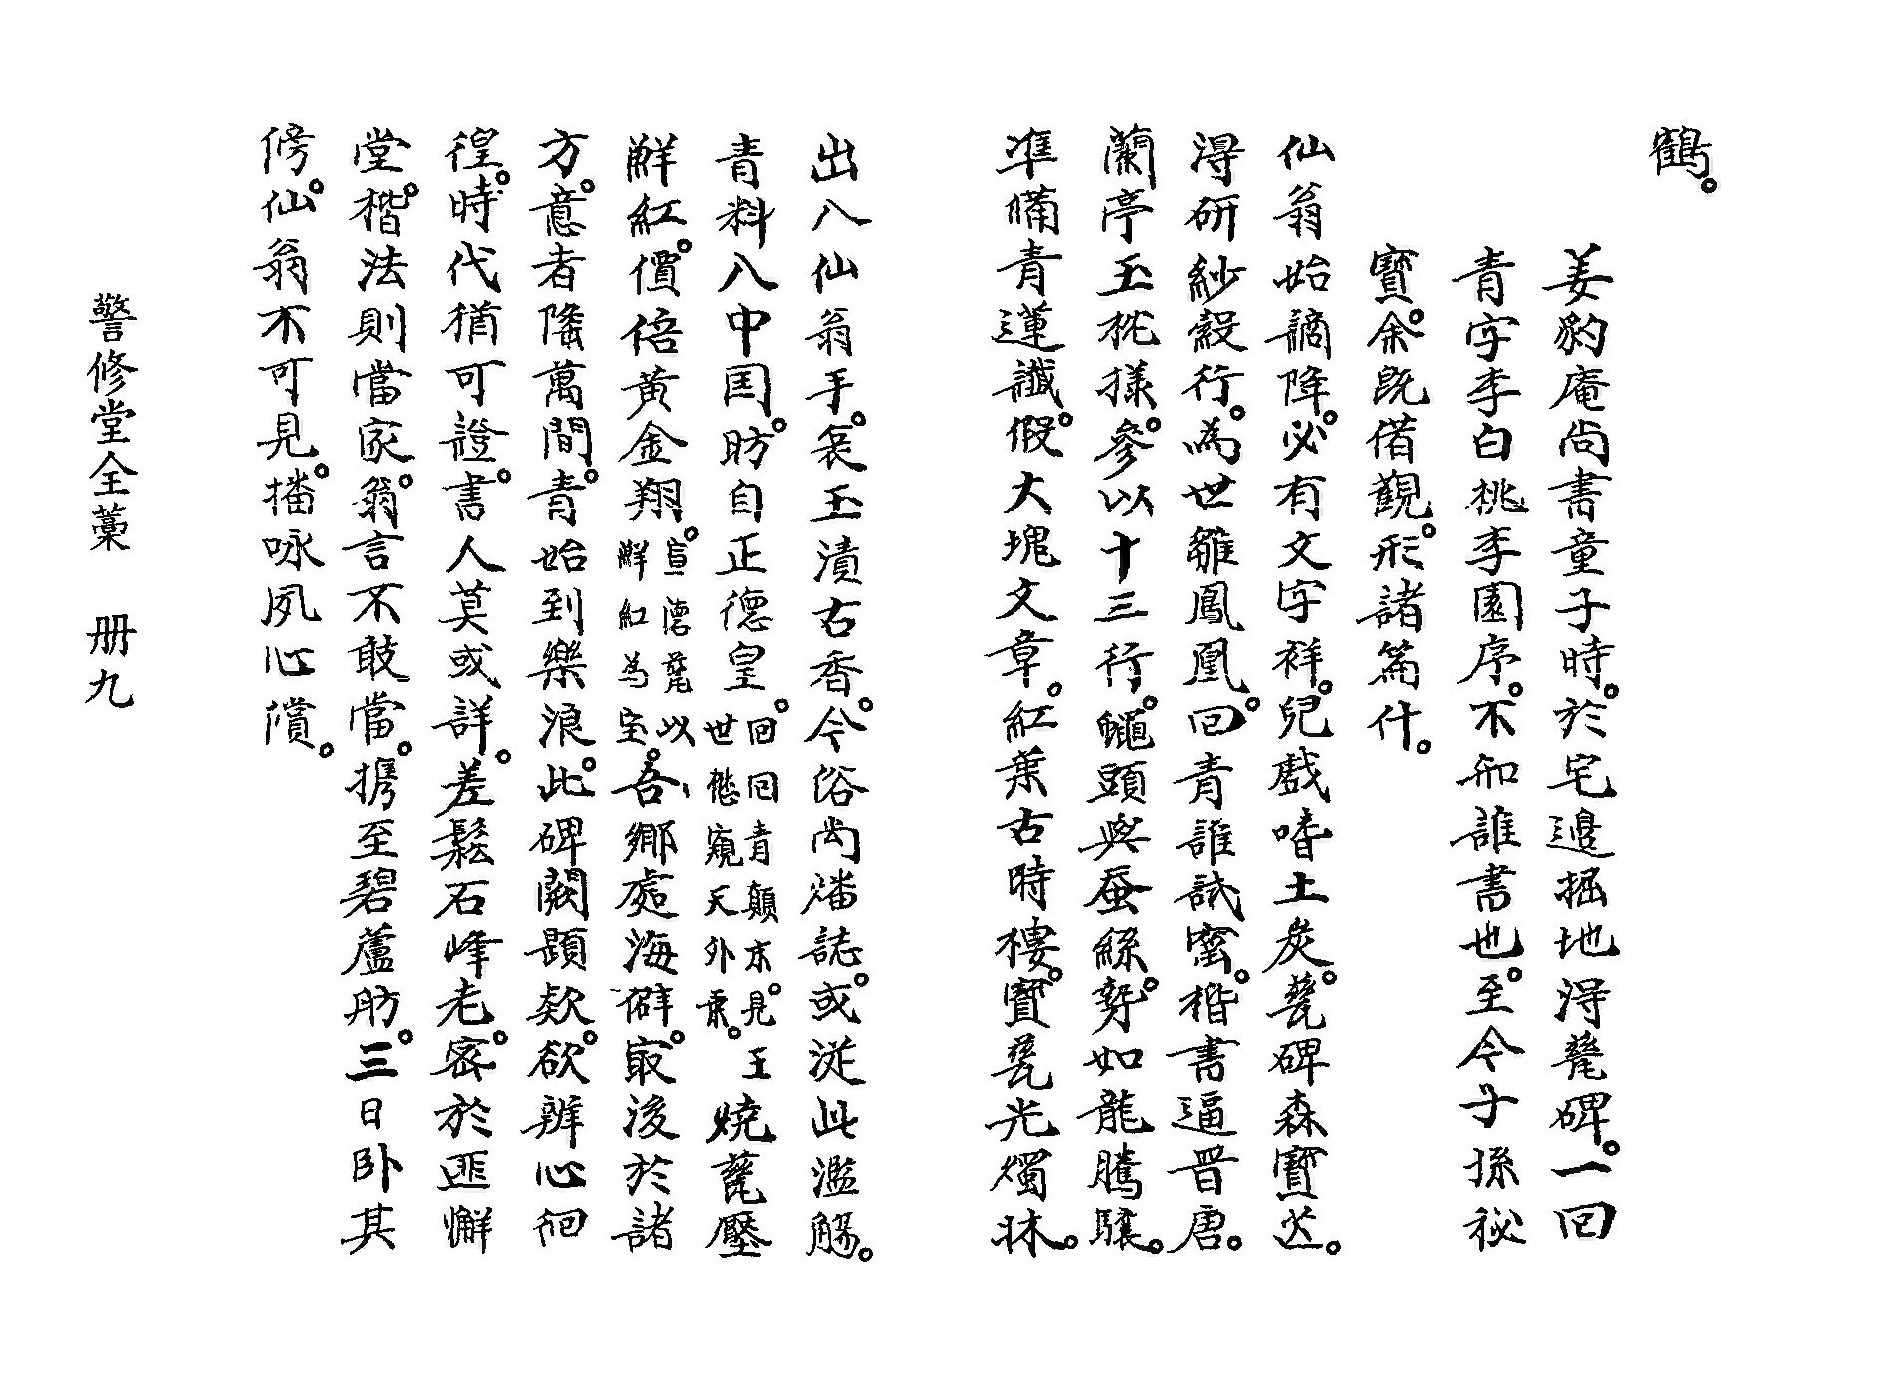 鶴。
姜豹庵尚書童子時。於宅邊掘地得甆碑。一回
青字李白桃李園序。不知誰書也。至今子孫秘
寶。余旣借觀。形諸篇什。
仙翁始謫降。必有文字祥。兒戲啗土炭。甆碑森寶芒。
淂研紗縠行。爲世雛鳳凰。回青誰試窰。楷書逼晋唐。
蘭亭玉枕㨾。參以十三行。蠅頭與蚕絲。辥如龍騰驤。
準備青蓮讖。假大塊文章。紅葉古時樓。寶甆光燭牀。
出八仙翁手。衮玉漬古香。今俗尙燔誌。或從此濫觴。
青料八中囯。昉自正德皇。回回青顚末。見王世懋窺天外乘。燒甆壓
鮮紅。價倍黃金翔。宣德甆以鮮紅爲宝。吾鄉處海僻。㝡後於諸
方。意者隆萬間。靑始到樂浪。此碑闕題欵。欲辨心徊
徨。時代猶可證。書人莫或詳。差鬆石峰老。密於匪懈
堂。楷法則當家。翁言不敢當。攜至碧蘆舫。三日卧其
傍。仙翁不可見。播咏夙心償。
警修堂全藁　冊九